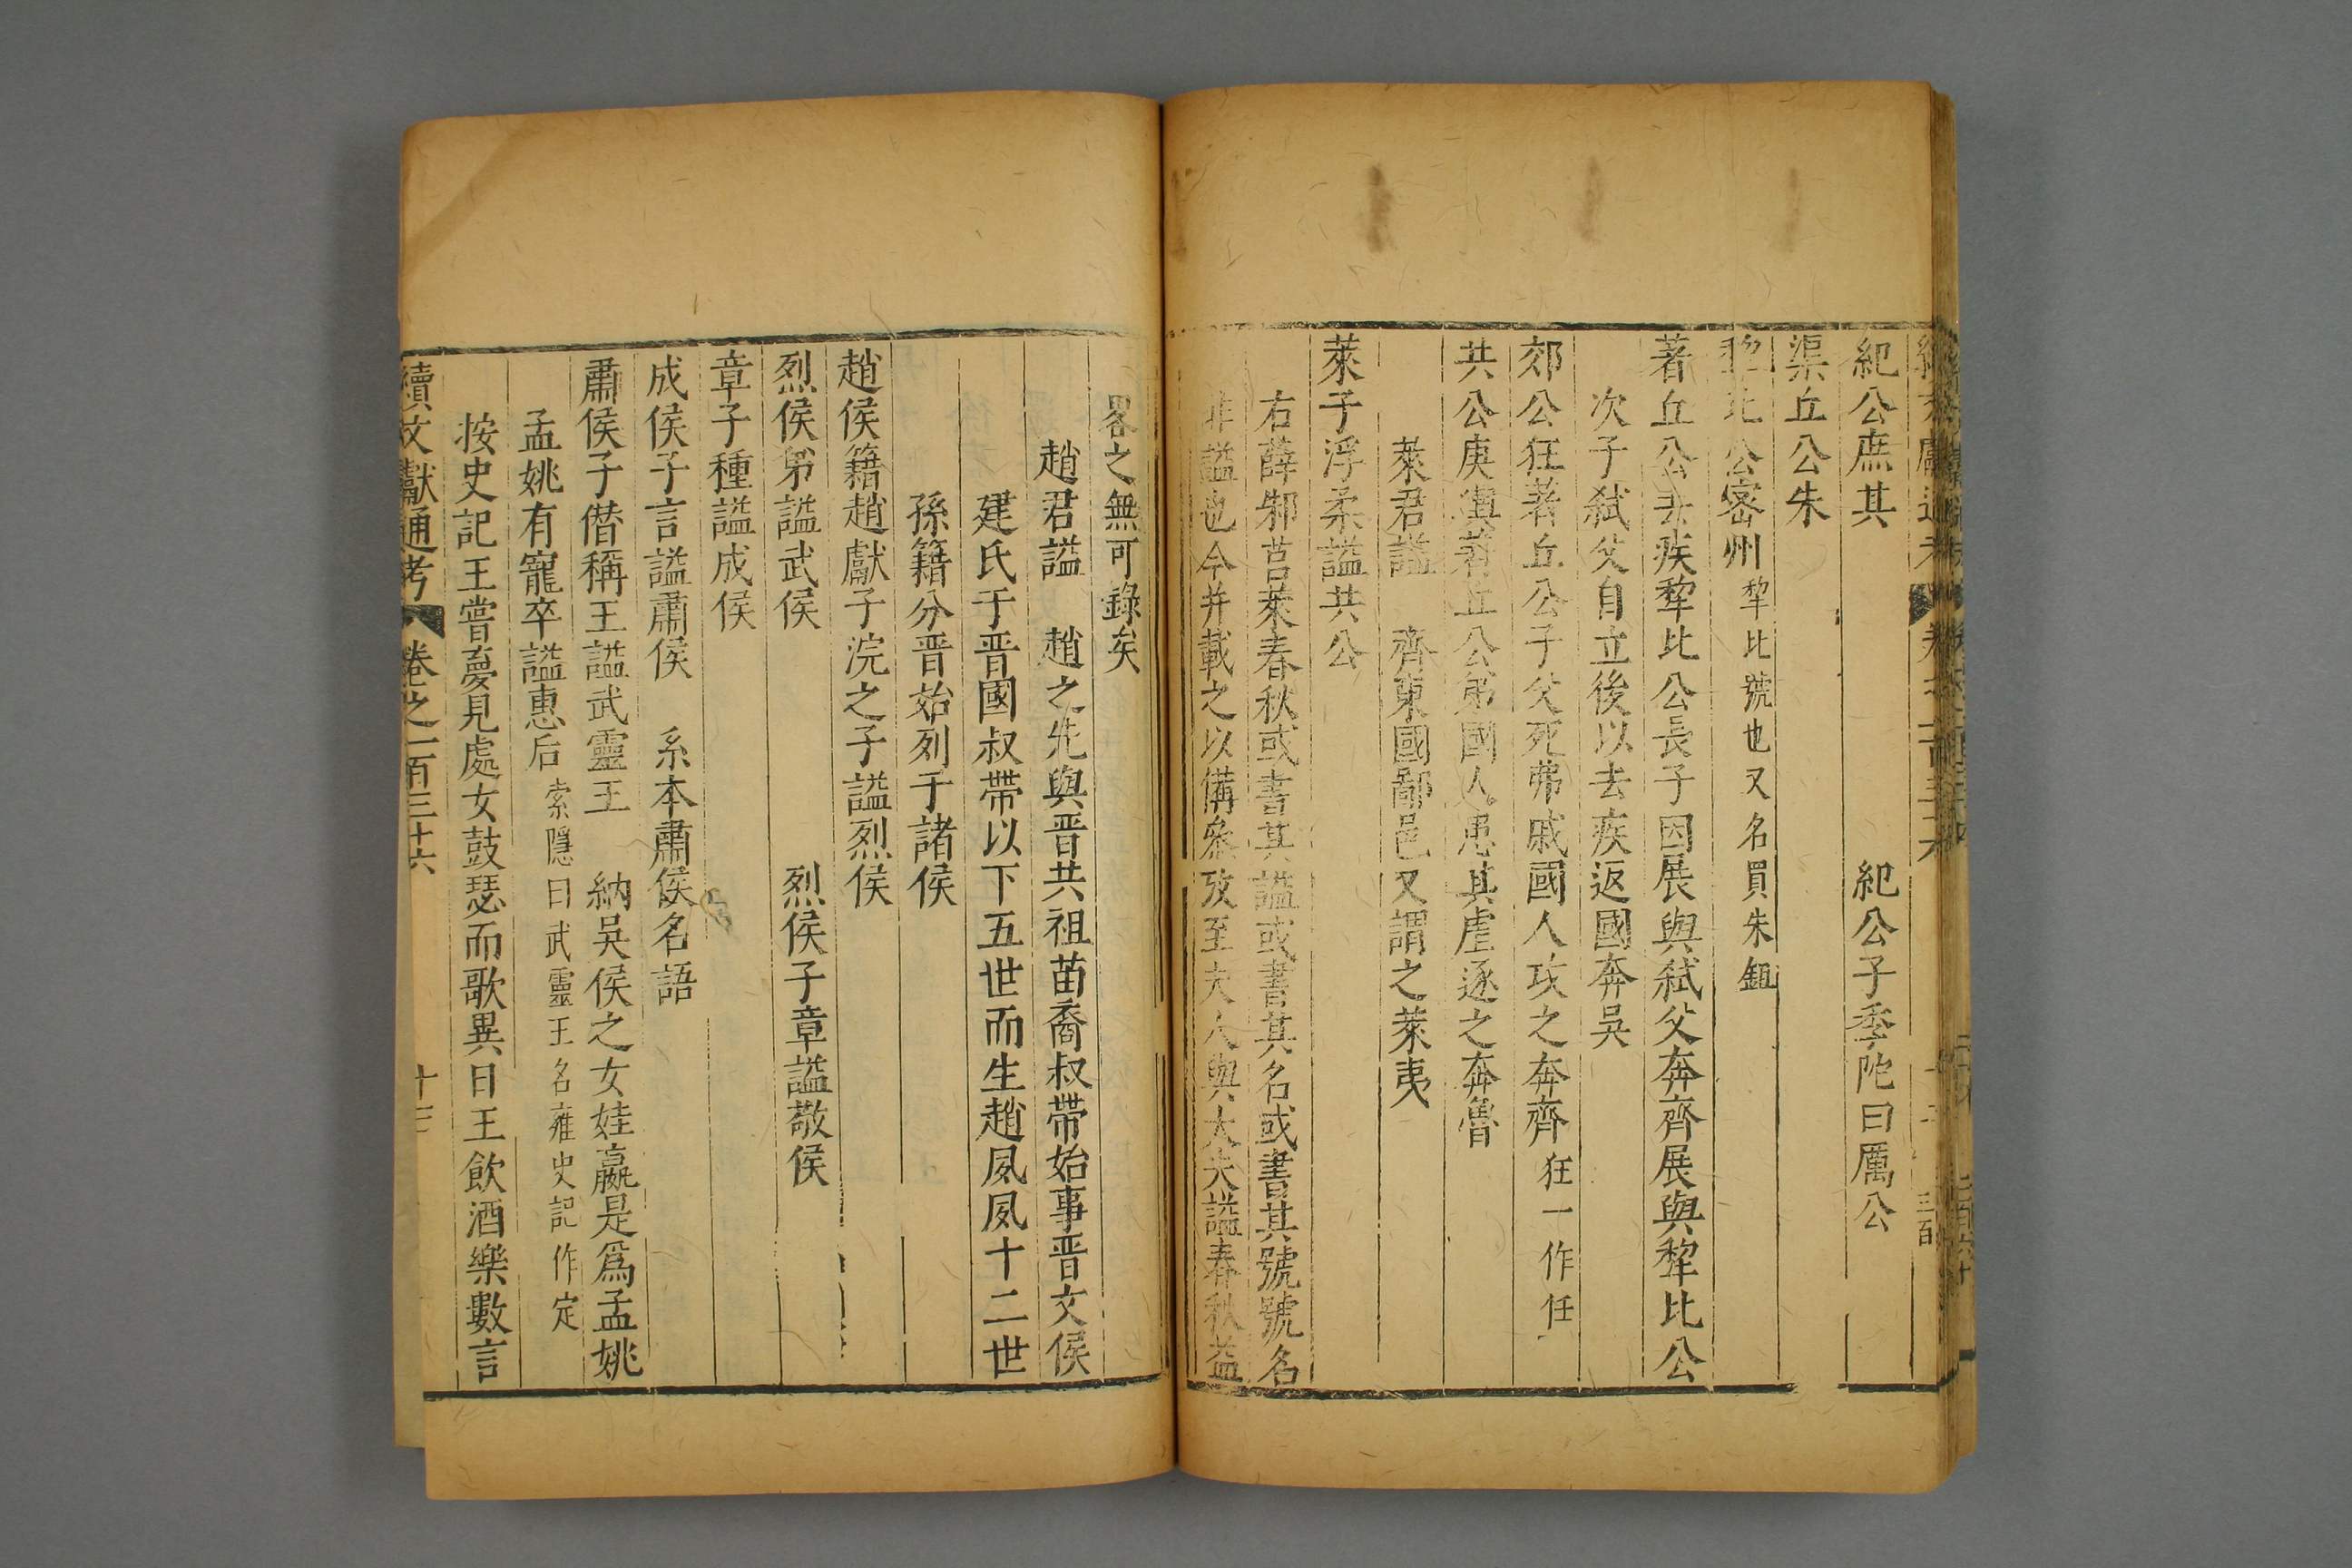 紀公庶其　紀公子季陀曰厲公
渠丘公朱
犂比公密州犂比號也又名買朱鉏
著丘公去疾犂比公長子因展輿弑父奔齊展輿犂比公
次子弑父自立後以去疾返國奔吳
郊公狂著丘公子父死弗戚國人攻之奔齊狂一作任
共公庚輿著丘公弟國人患其虐逐之奔魯
萊君謚　齊東國鄙邑又謂之萊夷
萊子浮柔謚共公
右薛邾莒萊春秋或書其謚或書其名或書其號號名
非謚也今并載之以備參攷至夫人與大夫謚春秋益
畧之無可錄矣
趙君謚　趙之先與晋共祖苗裔叔帶始事晋文侯
建氏于晋國叔帶以下五世而生趙夙夙十二世
孫籍分晋始列于諸侯
趙侯籍趙獻子浣之子謚烈侯
烈侯弟謚武侯　烈侯子章謚敬侯
章子種謚成侯
成侯子言謚肅侯　系本肅侯名語
肅侯子僭稱王謚武靈王　納吳侯之女娃嬴是爲孟姚
孟姚有寵卒謚惠后索隱曰武靈王名雍史記作定
按史記王嘗夢見處女鼓瑟而歌異日王飲酒樂數言
續文獻通考　卷之一百三十六　十三